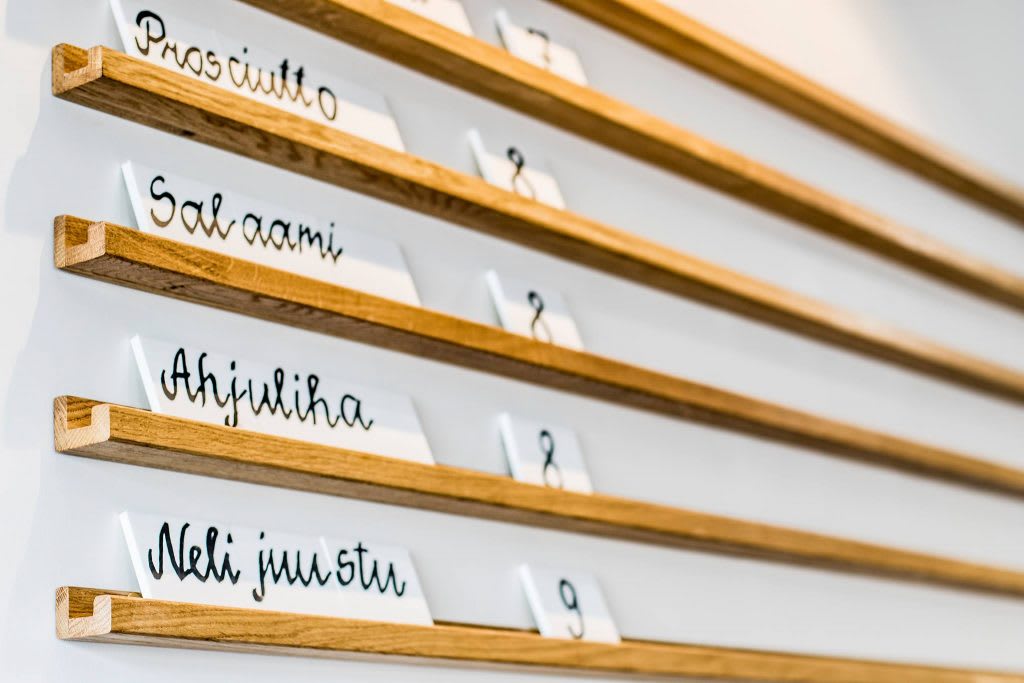 7
Prosciutto 8
Salaami 8
Ahjuliha 8
Neli juustu 9